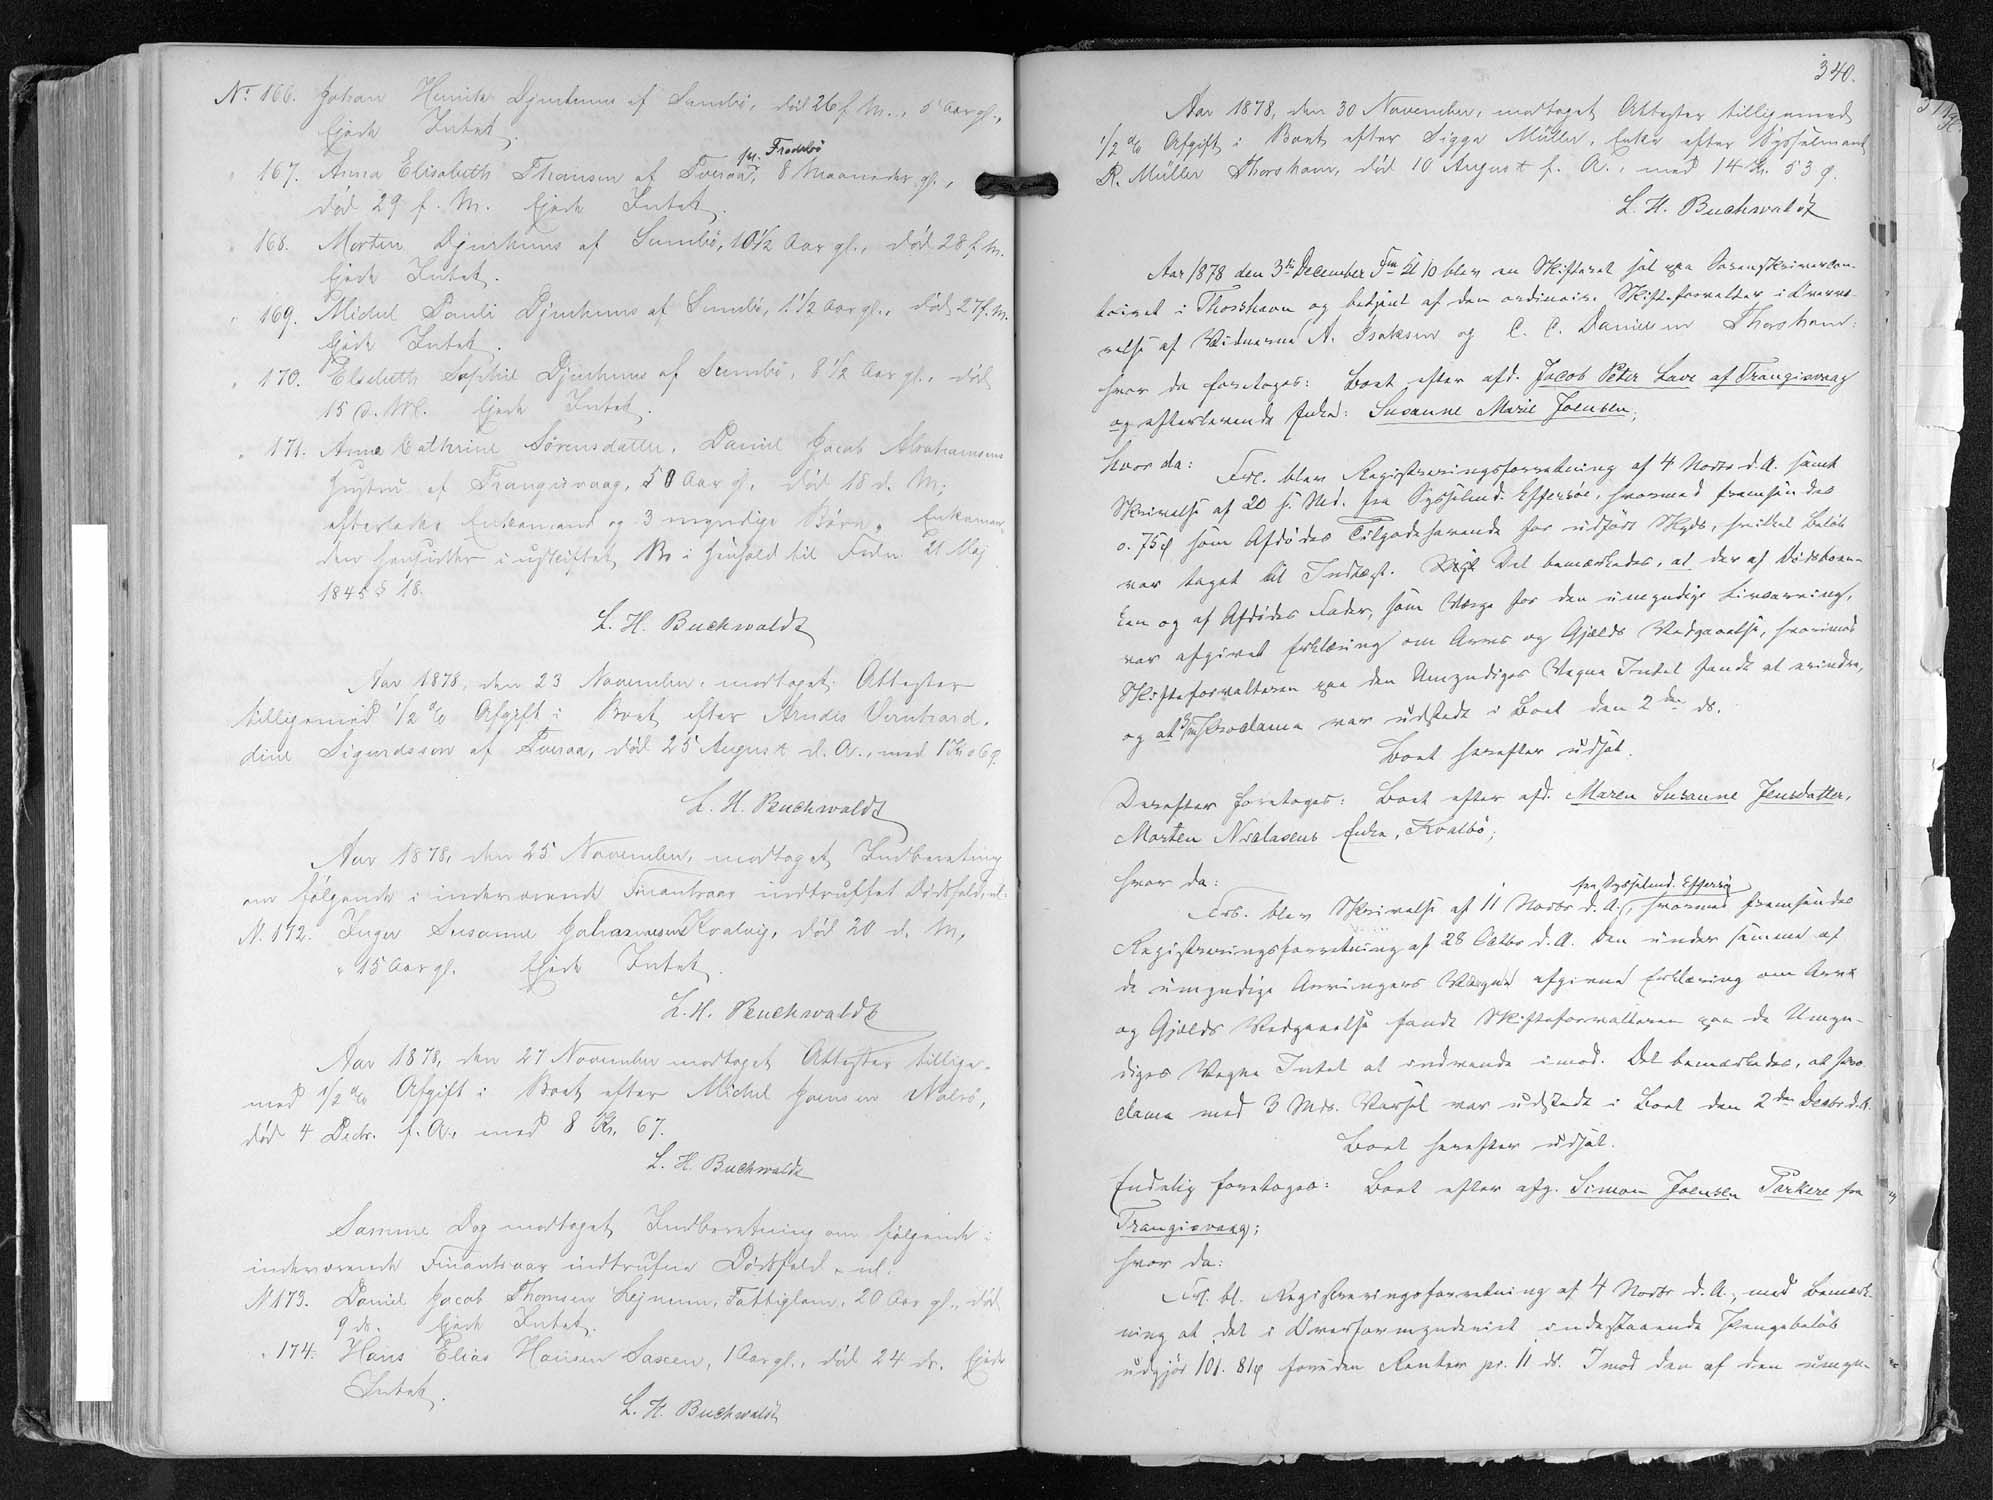 No. 166. Johan Henrik Djurhuus af Sumbø, død 26 f. M., Aar gl.,
Ejede Intet.
pr. Frodebø
" 167. Anna Elisabeth Thomsen af Tveraa, 8 Maaneder gl.,
død 29 f. M. Ejede Intet.
" 168. Morten Djurhuus af Sumbø, 10 1/2 Aar gl., død 28 f. M.
Ejede Intet.
" 169. Michel Pauli Djurhuus af Sumbø, 1 1/2 Aar gl., død 27 f. M.
Ejede Intet.
" 170. Elsebeth Sophie Djurhuus af Sumbø, 8 1/2 Aar gl., død
15 d. M. Ejede Intet.
" 171. Anna Cathrine Sørensdatter, Daniel Jacob Abrahamsens
Hustru af Trangisvaag, 50 Aar gl. død 18 d. M.,
efterlader Enkemand og 3 myndige Børn. Enkeman-
den hensidder i uskiftet Bo i Henhold til Frdn. 21 Maj
1845 § 18.
L. H. Buchwaldt
Aar 1878, den 23 November, modtaget Attester
tilligemed 1/2 % Afgift i Boet efter Arndis Vernhard-
dine Sigurdsson af Tveraa, død 25 August d. A., med 1 Kr. 06 ø.
L. H. Buchwaldt
Aar 1878, den 25 November, modtaget Indberetning
om følgende i indeværende Finantsaar indtruffet Dødsfald, nl:
N. 172. Inger Susanne Johannesen Kvalvig, død 20 d. M,
15 Aar gl. Ejede Intet.
L. H. Buchwaldt
Aar 1878, den 27 November modtaget Attester tillige-
med 1/2 % Afgift i Boet efter Michel Joensen Nolsø,
død 4 Decbr. f. A., med 8 Kr. 67.
L. H. Buchwaldt
Samme Dag modtaget Indberetning om følgende i
indeværende Finantsaar indtrufne Dødsfald, nl:
N 173. Daniel Jacob Thomsen Lejnum, Fattiglem, 20 Aar gl., død
9 ds. Ejede Intet.
" 174. Hans Elias Hansen Saxen, 1 Aar gl., død 24 ds. Ejede
Intet.
L. H. Buchwaldt
340.
Aar 1878, den 30 November, modtaget Attester tilligemed
1/2 % Afgift i Boet efter Sigga Müller, Enke efter Sysselmand
R. Müller Thorshavn, død 10 August f. A., med 14 Kr. 53 ø.
L. H. Buchwaldt
Aar 1878 den 3die December Fm Kl 10 blev en Skifteret sat paa Sorenskrivercon-
toiret i Thorshavn og betjent af den ordinaire Skifteforvalter i Overvæ-
relse af Vidnerne A. Isaksen og C. C. Danielsen Thorshavn:
hvor da foretoges: Boet efter afd. Jacob Peter Lave af Trangisvaag
og efterlevende Enke: Susanne Marie Joensen;
hvor da:
Frl. blev Registreringsforretning af 4 Novbr d. A. samt
Skrivelse af 20 s. Md. fra Sysselmd. Effersøe, hvormed fremsendes
0.75 ø som Afdødes Tilgodehavende for udført Skyds, hvilket Beløb
var taget til Indtægt. Det bemærkedes, at der af Dødsboen-
ken og af Afdødes Fader, som Værge for den umyndige Livsarving,
var afgivet Erklæring om Arvs og Gjælds Vedgaaelse, hvorimod
Skifteforvalteren paa den Umyndiges Vegne Intet fandt at erindre,
og at 3/m Proclama var udstedt i Boet den 2den ds.
Boet herefter udsat.
Derefter foretoges: Boet efter afd. Maren Susanne Jensdatter,
Morten Niclasens Enke, Kvalbø;
hvor da:
fra Sysselmd. Effersøe
Frl. blev Skrivelse af 11 Novbr d. A., hvormed fremsendes
Registreringsforretning af 28 Octbr d. A. Den under samme af
de umyndige Arvingers Værge afgivne Erklæring om Arvs
og Gjælds Vedgaaelse fandt Skifteforvalteren paa de Umyn-
diges Vegne Intet at indvende imod. Det bemærkedes, at Pro-
clama med 3 Mds. Varsel var udstedt i Boet den 2den Decbr d. A.
Boet herefter udsat.
Endelig foretoges: Boet efter afg. Simon Joensen Parkere fra
Trangisvaag;
hvor da:
Frl. bl. Registreringsforretning af 4 Novbr d. A., med Bemærk-
ning at det i Overformynderiet indestaaende Pengebeløb
udgjør 101. 81 ø foruden Renter pr. 11 ds. Imod den af den umyn-